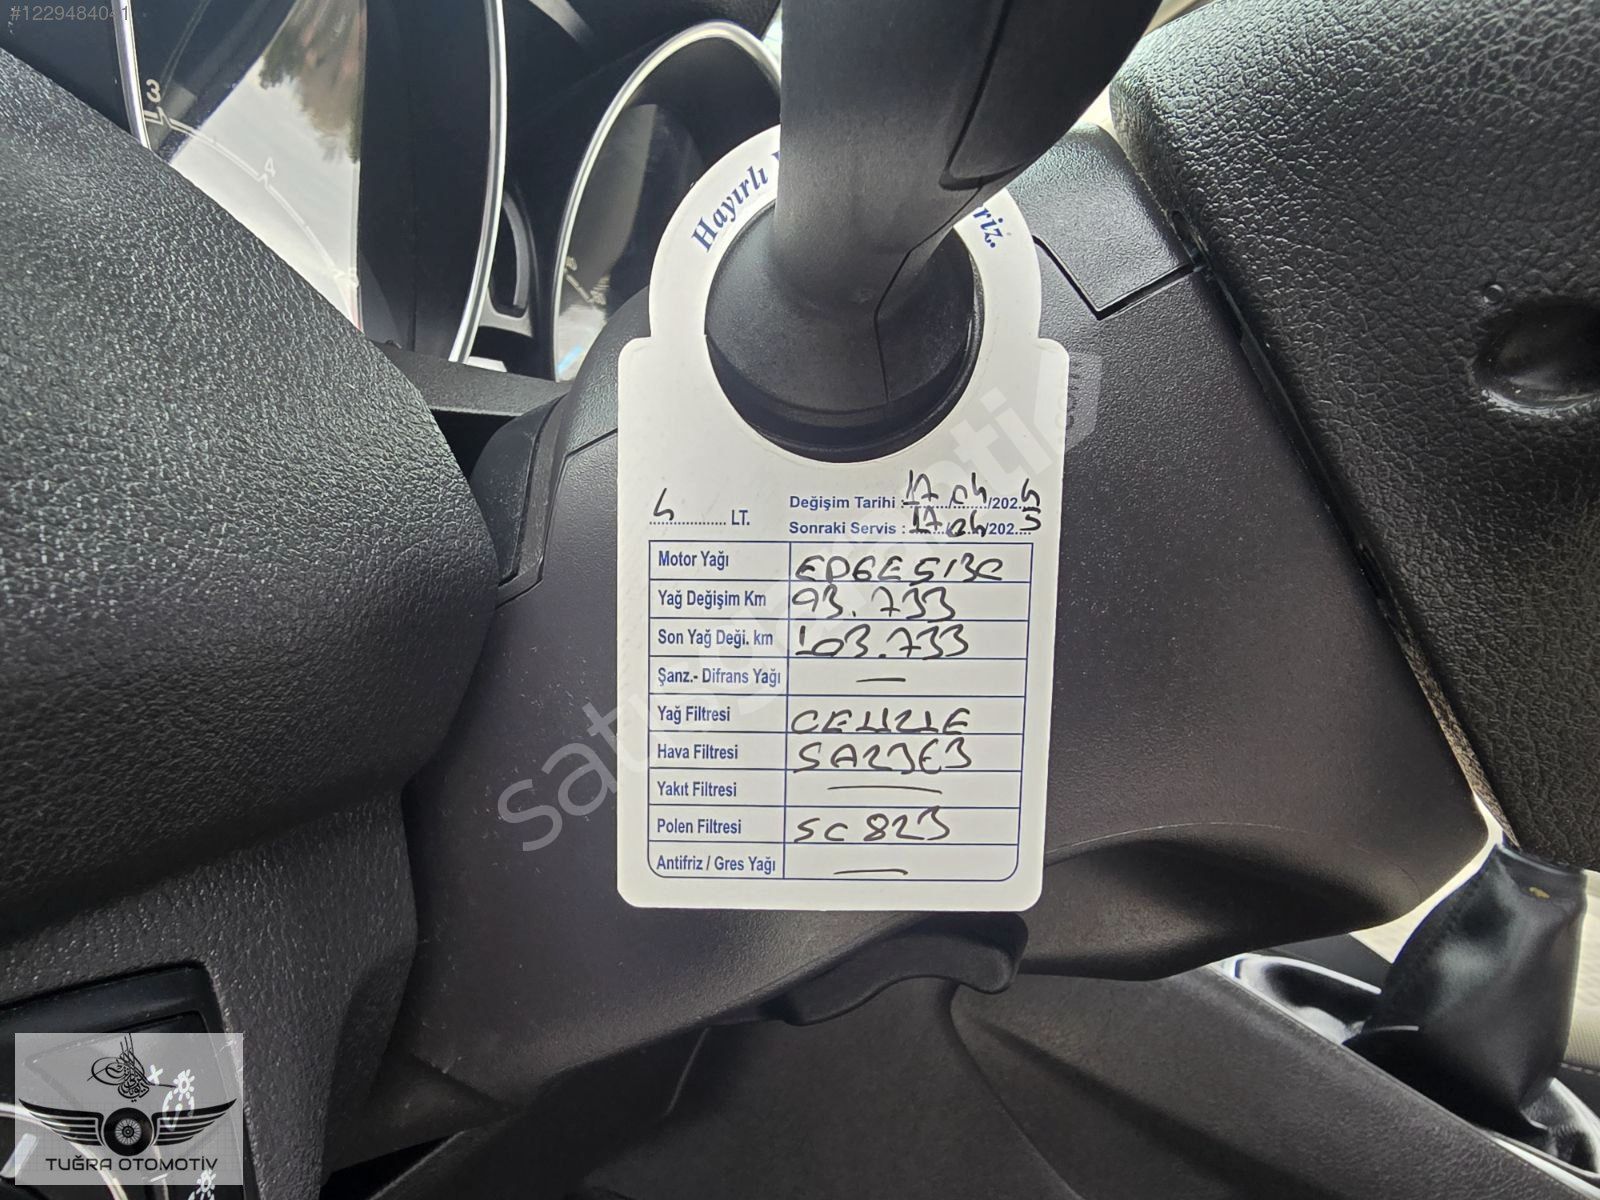 #1229484041
3
4
Hayırlı
riz.
4 LT.
Değişim Tarihi : 17/04/2024
Sonraki Servis : 17/04/2025
Motor Yağı EDGE 513C
Yağ Değişim Km 93.733
Son Yağ Deği. km 103.733
Şanz.- Difrans Yağı —
Yağ Filtresi
Hava Filtresi
Yakıt Filtresi —
Polen Filtresi SC 823
Antifriz / Gres Yağı —
TUĞRA OTOMOTİV